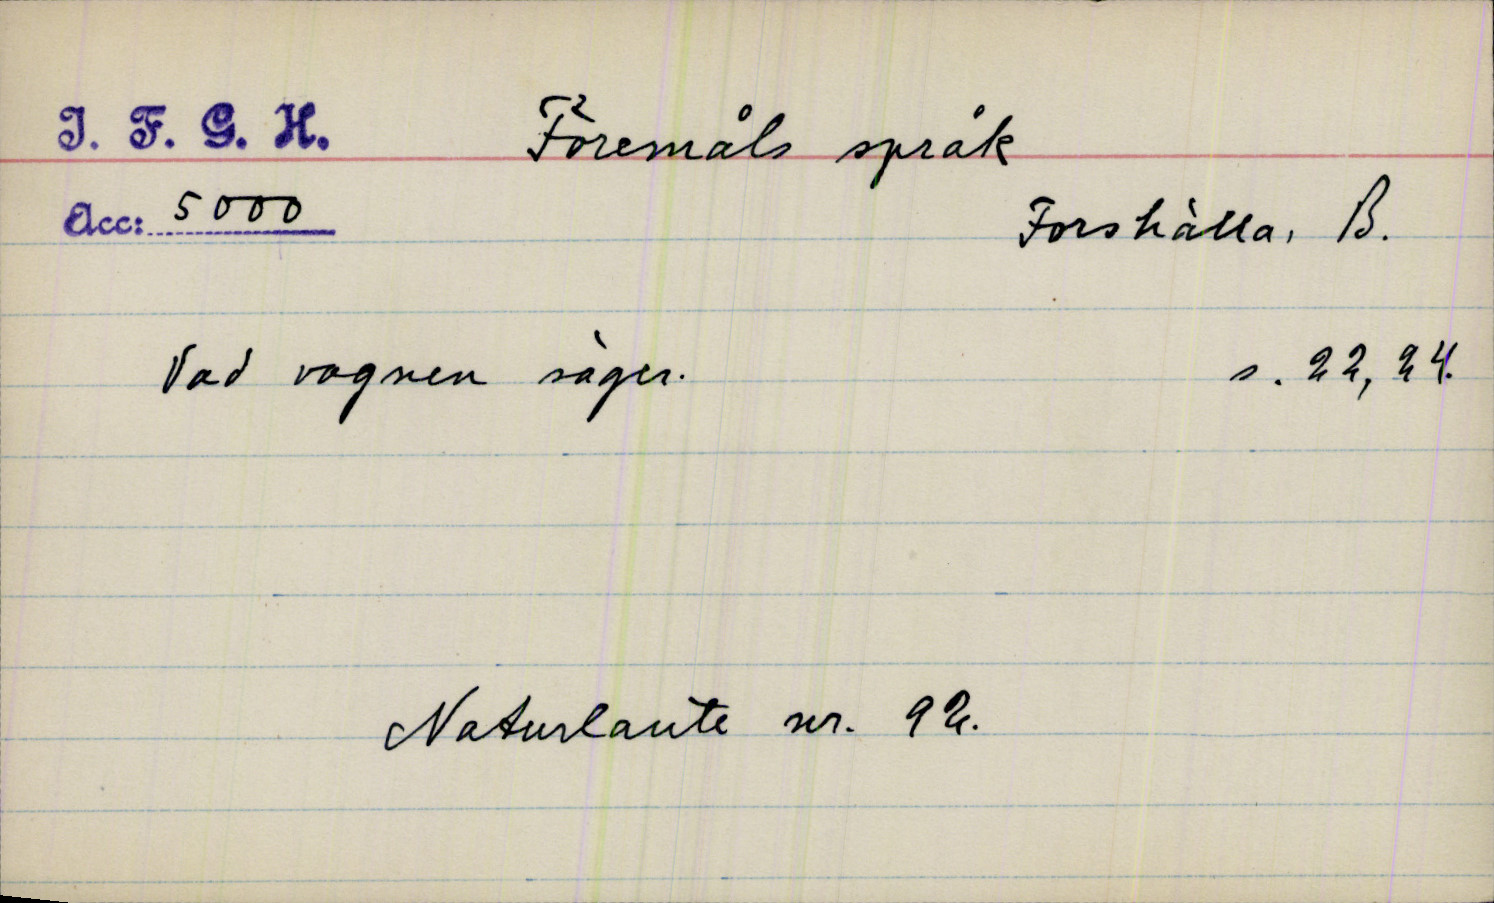 I. F. G. H.
Föremåls språk
Acc: 5000
Forshälla, B.
Vad vagnen säger. s. 22, 24.
Naturlaute nr. 92.